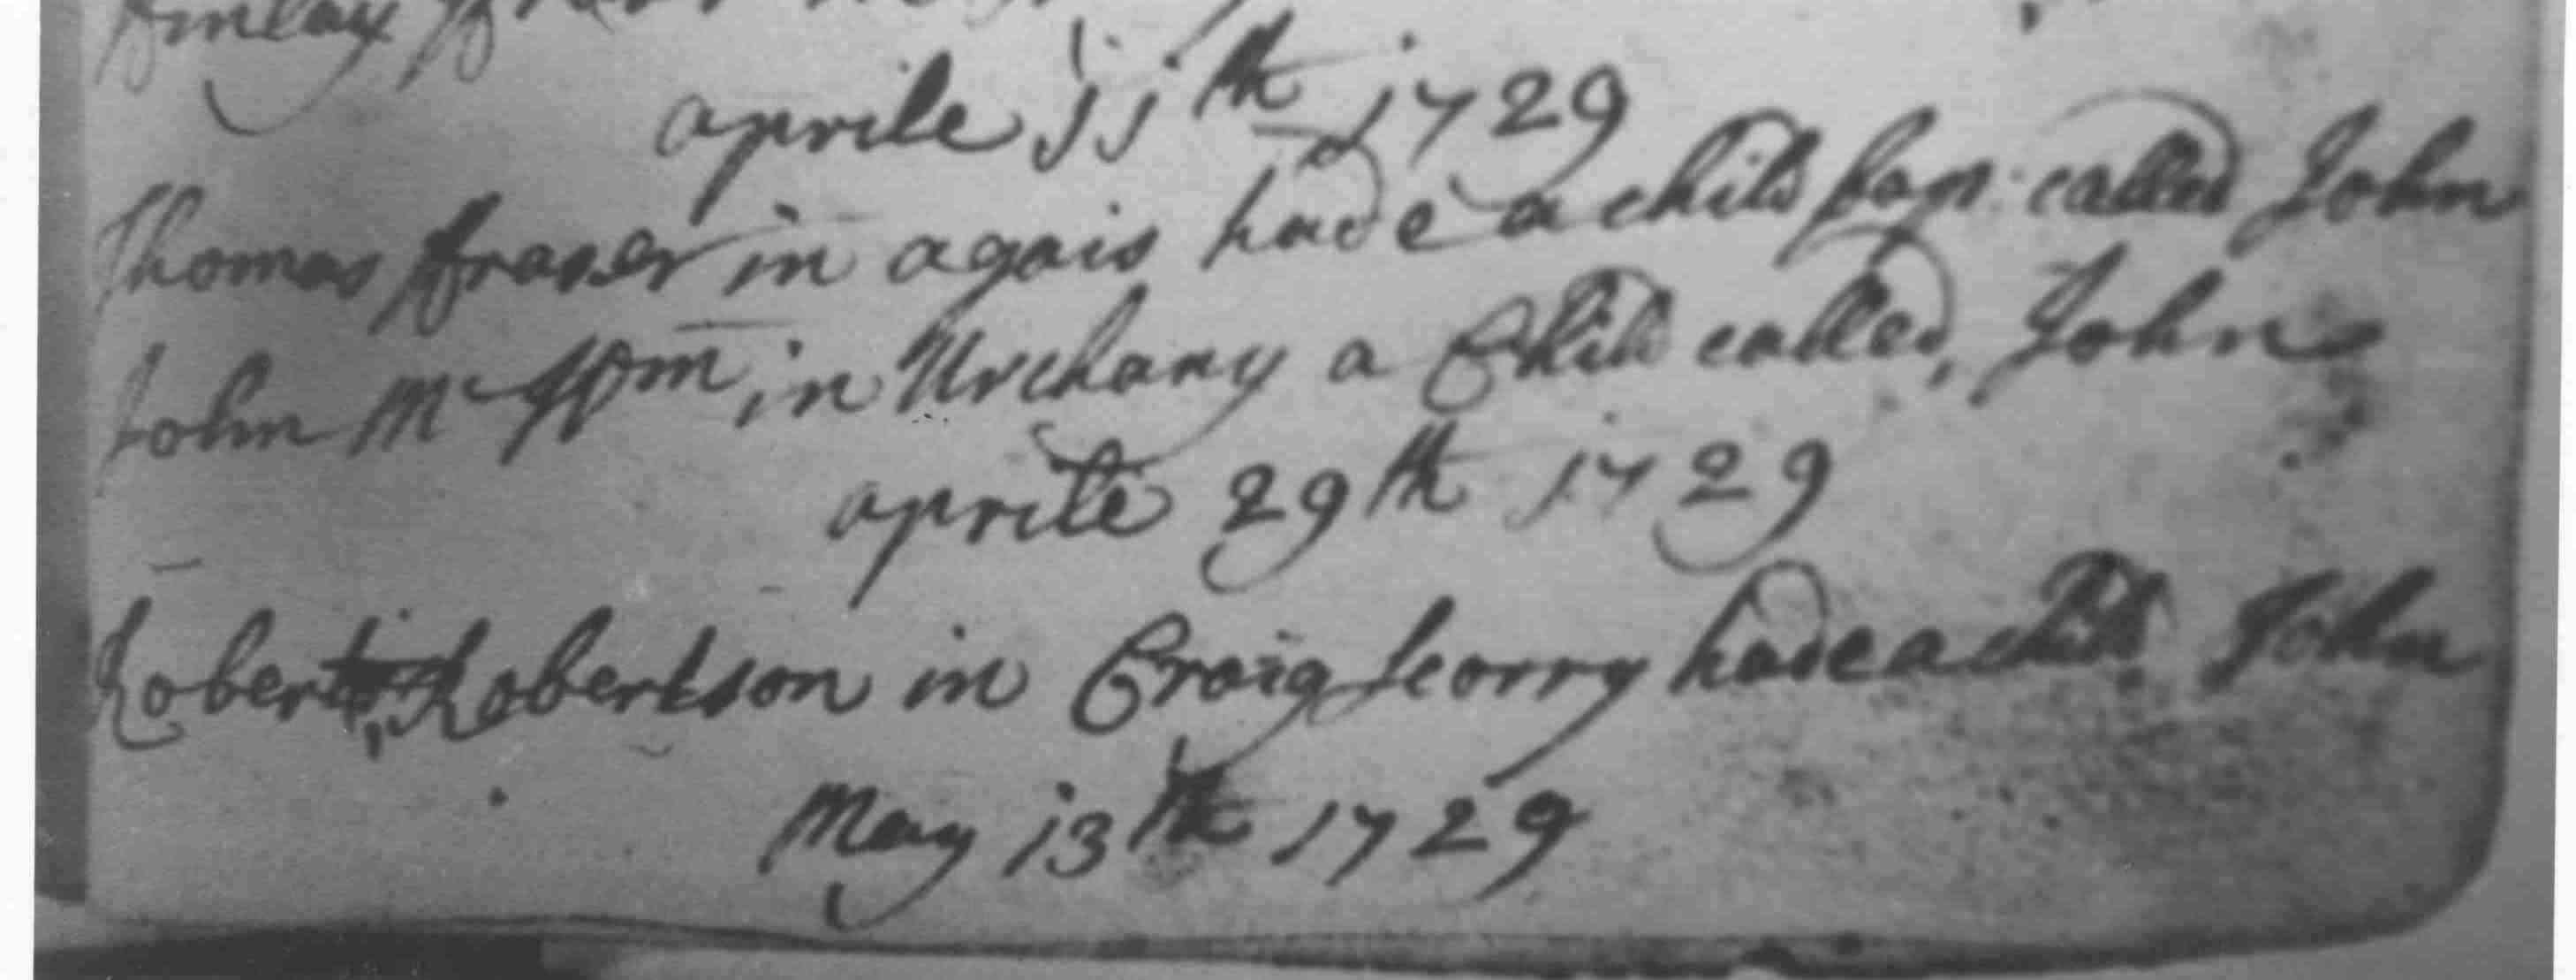 Finlay
aprile 11th 1729
Thomas ffraser in agais hade a child bap: called John
John Mc Wm in Urchany a Child called, John
aprile 29th 1729
Robert Robertson in Craigscorry hade a child John
May 13th 1729